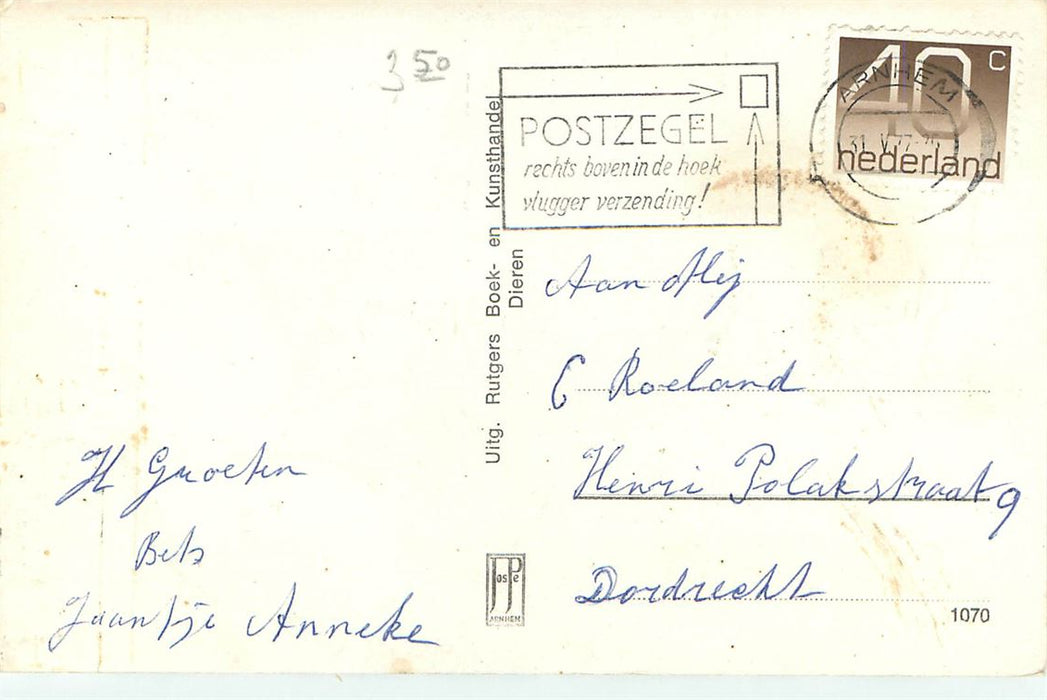 3 50
POSTZEGEL
rechts boven in de hoek
vlugger verzending!
ARNHEM
31 V 77
40 C
nederland
Uitg. Rutgers Boek- en Kunsthandel
Dieren
Aan Mej
C Roeland
Henri Polakstraat 9
Dordrecht
H Groeten
Bets
Jaantje Anneke
JosPe
ARNHEM
1070